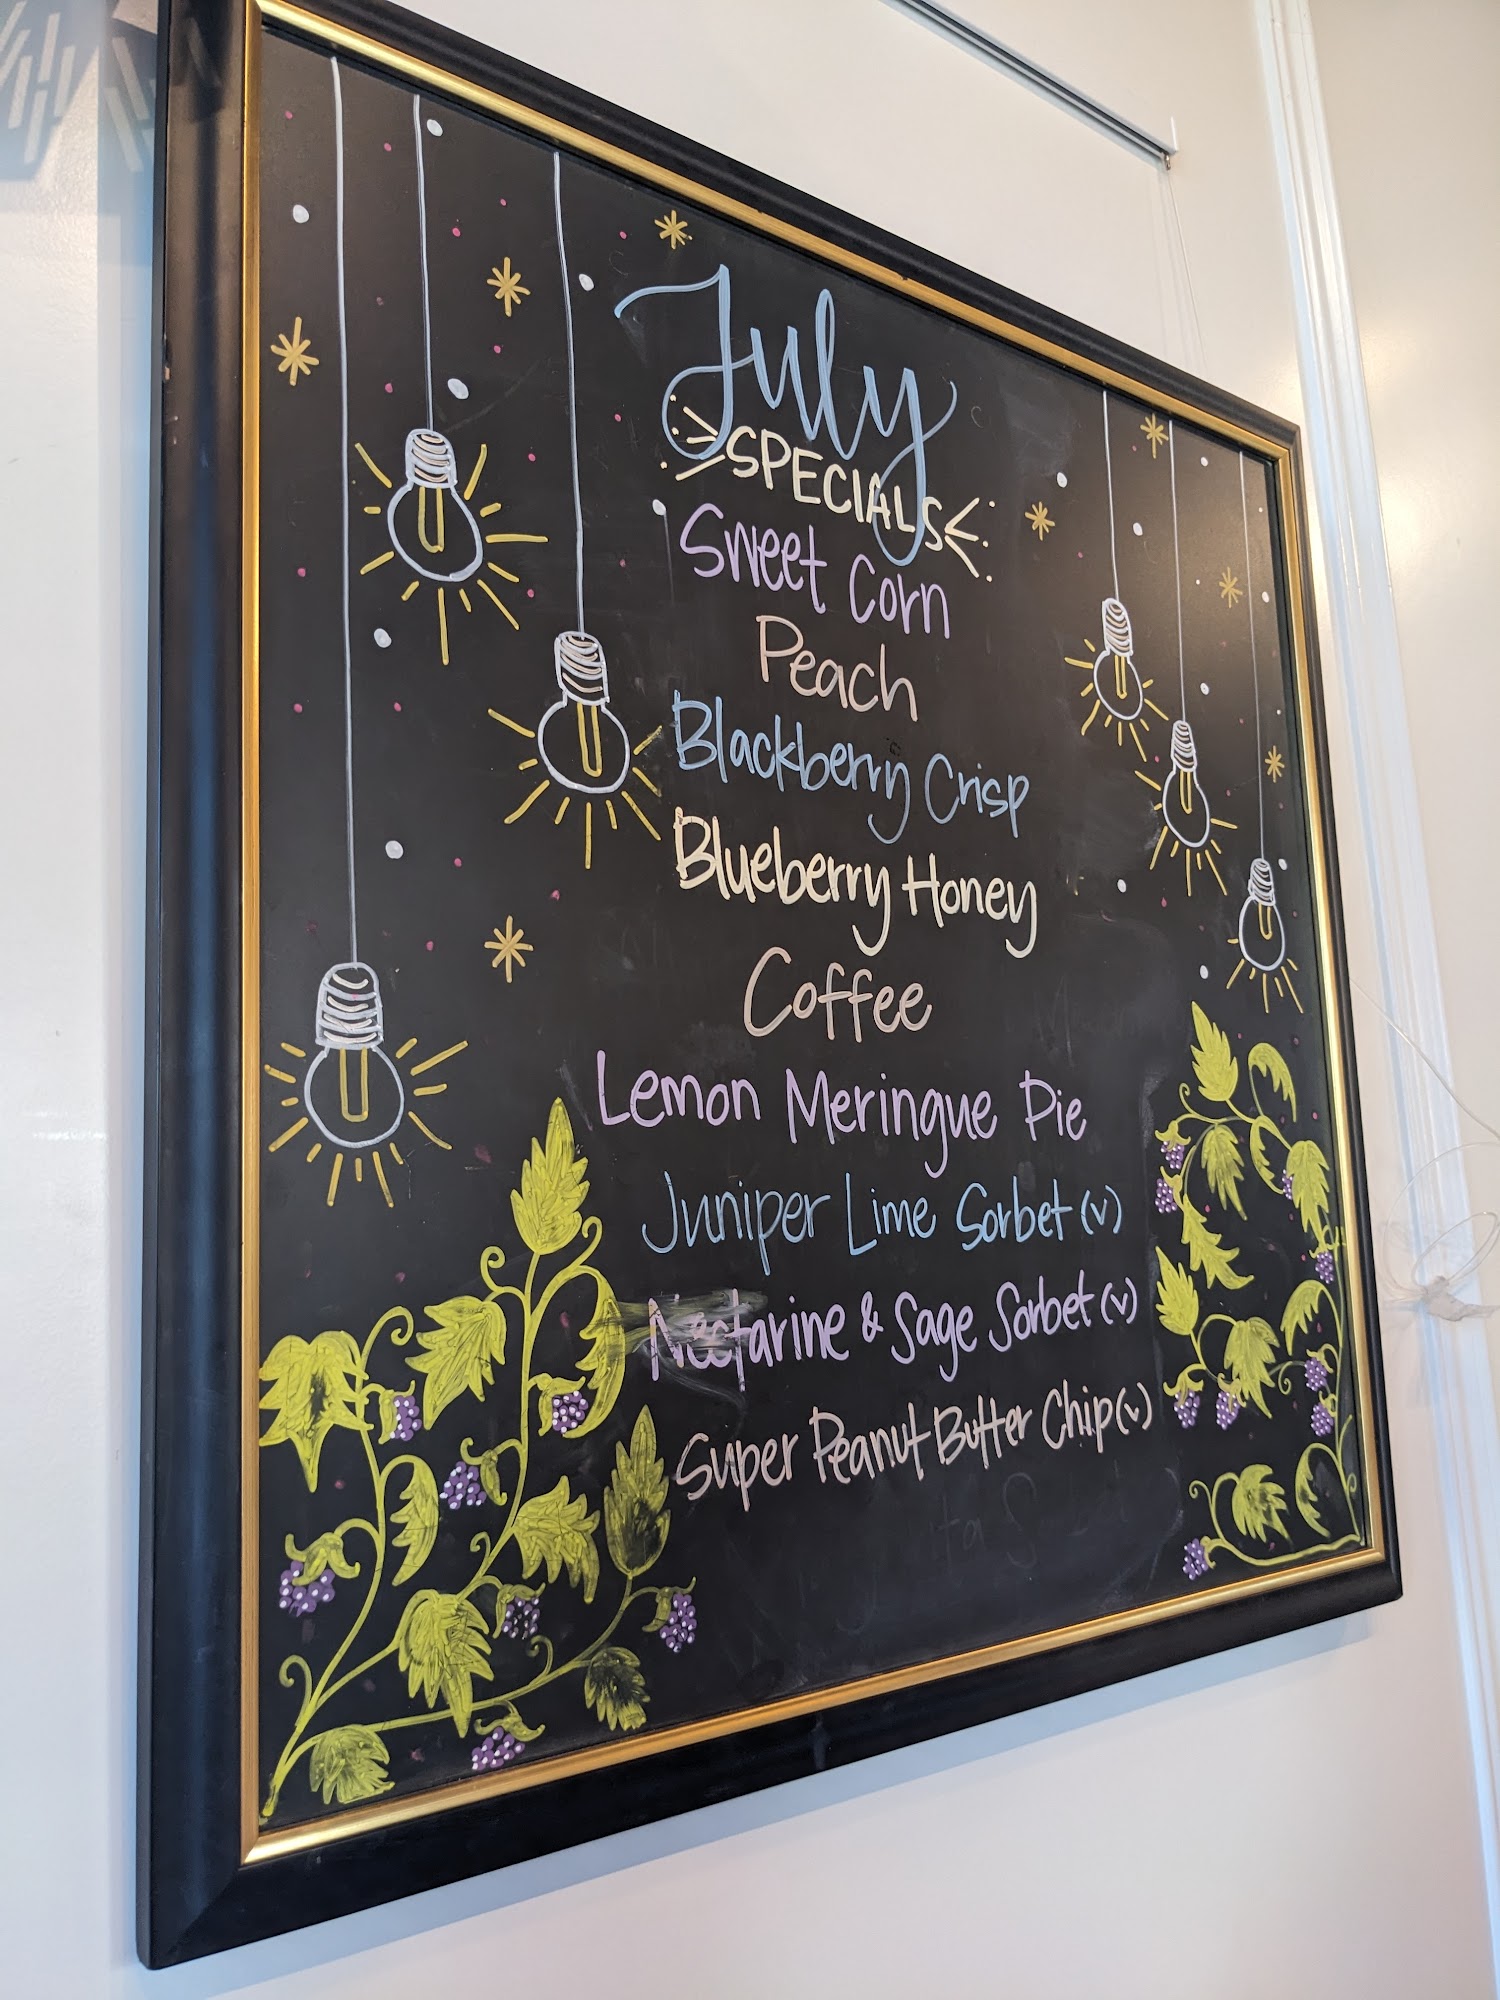 July
SPECIALS
Sweet Corn
Peach
Blackberry Crisp
Blueberry Honey
Coffee
Lemon Meringue Pie
Juniper Lime Sorbet (v)
Nectarine & Sage Sorbet (v)
Super Peanut Butter Chip (v)